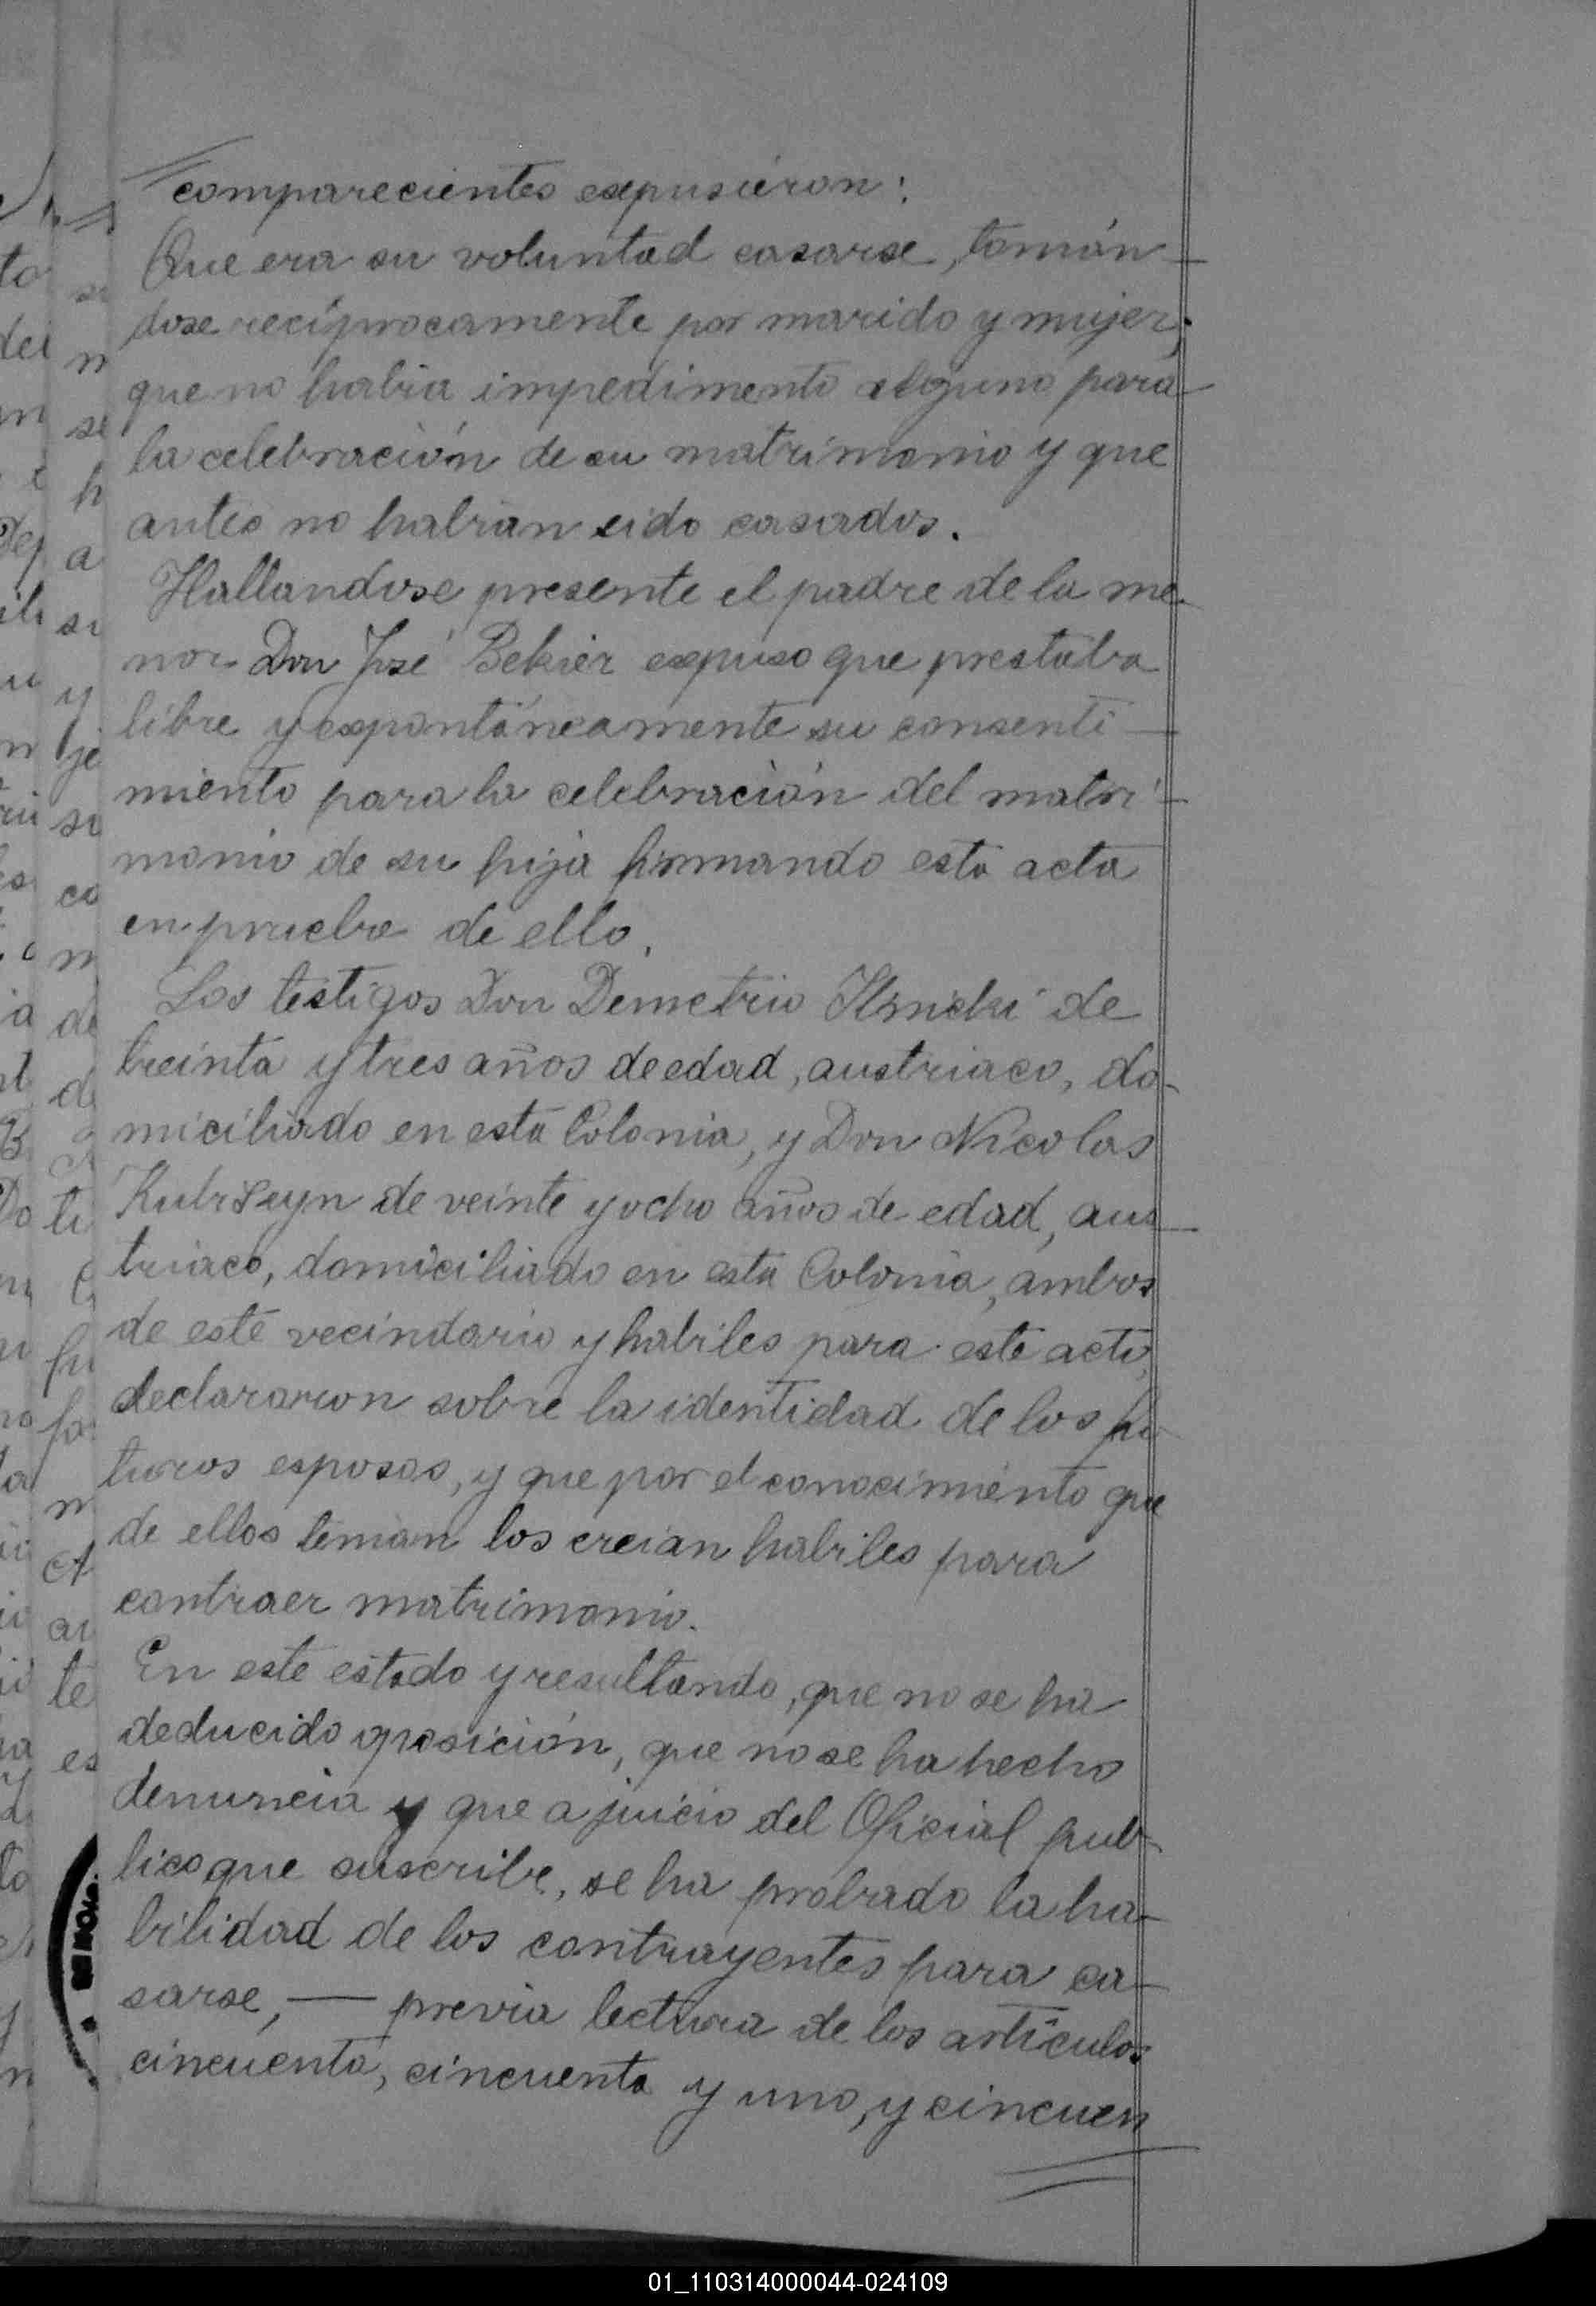 comparecientes expusieron:
Que era su voluntad casarse, tomán-
dose recíprocamente por marido y mujer;
que no habia impedimento alguno para
la celebración de su matrimonio y que
antes no habian sido casados.
Hallandose presente el padre de la me-
nor Don José Bekier expuso que prestaba
libre y expontáneamente su consenti-
miento para la celebración del matri-
monio de su hija firmando esta acta
en prueba de ello.
Los testigos Don Demetrio Ilnicki de
treinta y tres años de edad, austriaco, do-
miciliado en esta Colonia, y Don Nicolas
Kubiseyn de veinte y ocho años de edad, aus-
triaco, domiciliado en esta Colonia, ambos
de este vecindario y habiles para este acto,
declararon sobre la identidad de los fu-
turos esposos, y que por el conocimiento que
de ellos tenian los creian habiles para
contraer matrimonio.
En este estado y resultando, que no se ha
deducido oposición, que no se ha hecho
denuncia y que a juicio del Oficial pub-
lico que suscribe, se ha probado la ha-
bilidad de los contrayentes para ca-
sarse, — previa lectura de los artículos
cincuenta, cincuenta y uno, y cincuen
01_110314000044-024109